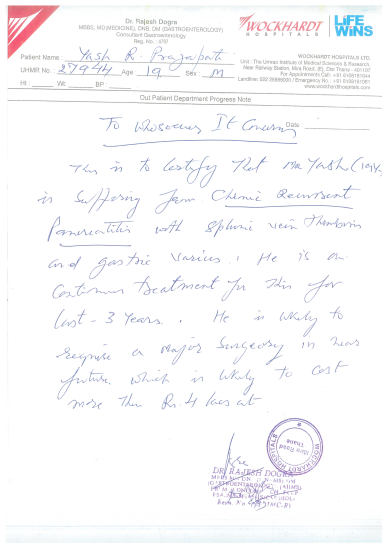 Dr. Rajesh Dogra
MBBS, MD(MEDICINE), DNB, DM (GASTROENTEROLOGY)
Consultant Gastroenterology
Reg. No.
WOCKHARDT
HOSPITALS
LiFE
WiNS
WOCKHARDT HOSPITALS LTD.
Unit : The Umrao Institute of Medical Sciences & Research,
Near Railway Station, Mira Road, (E), Dist Thane - 401107
For Appointments Call:
www.wockhardthospitals.com
Patient Name : Yash R. Prajapati
UHMR No. : 27944 Age : 19 Sex : M
Ht : Wt : BP :
Out Patient Department Progress Note
Date :
To Whosoever It Concerns
This is to Certify That Mr Yash (19y/
is suffering from Chronic Recurrent
Pancreatitis with splenic vein Thrombosis
and gastric varices. He is on
Continuous treatment for this for
last - 3 Years. He is likely to
require a Major Surgery in near
future which is likely to cost
more than Rs. 4 lacs at
WOCKHARDT HOSPITALS
Mira Road
Thane
DR. RAJESH DOGRA